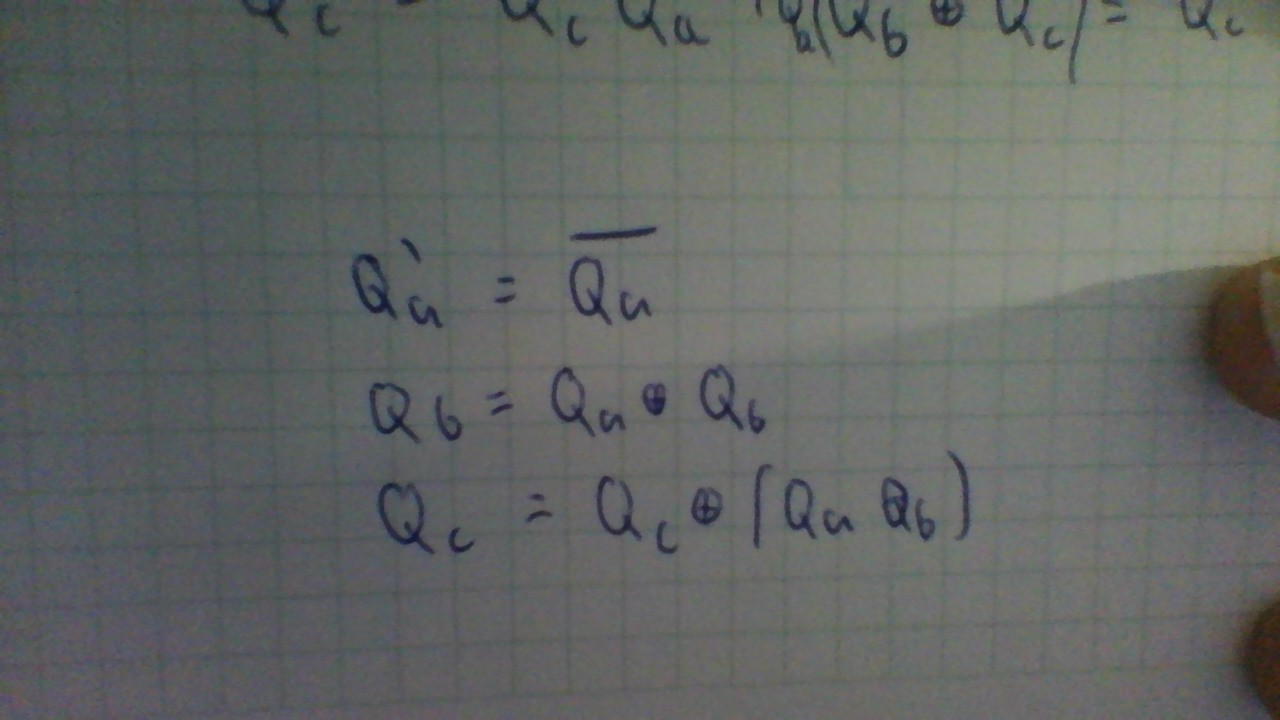 Qc = Qc Qa Qb(Qb ⊕ Qc) = Qc
Qa' = Q̅a̅
Qb = Qa ⊕ Qb
Qc = Qc ⊕ (Qa Qb)